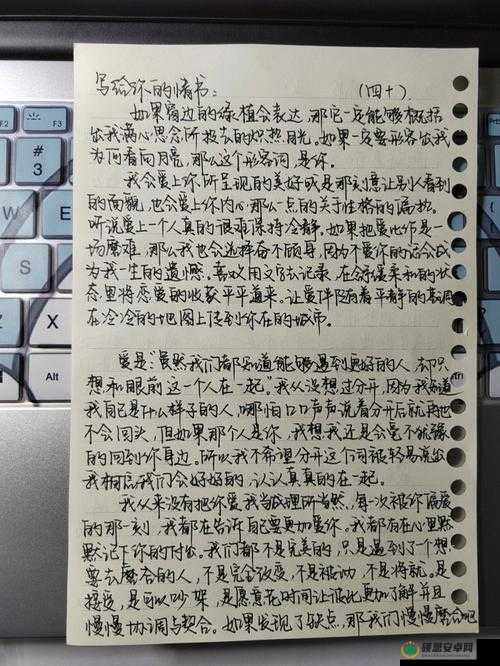 写给你的情书：（四十）
如果窗边的绿植会表达，那它一定能够概括
出我满心思念所投去的炽热目光。如果一定要形容出我
为何看向月亮，那么这个形容词，是你。
我会爱上你所呈现的美好或是那刻意让别人看到
的面貌，也会爱上你内心那么一点的关于性格的偏执。
听说爱上一个人真的很难保持冷静，如果把爱比作是一
场磨难，那么我也会选择奋不顾身，因为不爱你的话会成
为我一生的遗憾。喜欢用文字去记录，在舒缓柔和的状
态里将恋爱的收获平平道来。让爱伴随着平静的基调
在冷冷的地图上传到你在的城市。
爱是“虽然我们都知道能够遇到更好的人，却只
想和眼前这一个人在一起”。我从没想过分开，因为我知道
我自己是什么样子的人，哪怕口口声声说着分开后就再也
不会回头，但如果那个人是你，我想我还是会毫不犹豫
的回到你身边。所以我不希望分开这个词被轻易说出
我相信我们会好好的，认认真真的在一起。
我从来没有把你爱我当成理所当然，每一次被你偏爱
的那一刻，我都在告诉自己要更加爱你。我都有在心里默
默记下你的付出。我们都不是完美的，只是遇到了个想
要去磨合的人，不是完全改变，不是被动，不是将就。是
接受，是可以吵架，是愿意花时间让彼此更加了解并且
慢慢协调与契合。如果发现了缺点，那我们慢慢磨合吧
硕思安卓网
F2
F3